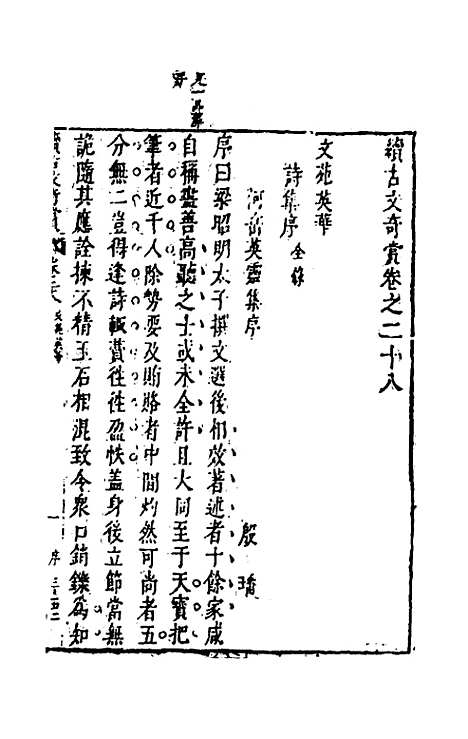 續古文奇賞卷之二十八
文苑英華
詩集序 全錄
河岳英靈集序
殷璠
序曰梁昭明太子撰文選後相效著述者十餘家咸
自稱盡善高聽之士或未全許且大同至于天寶把
筆者近千人除勢要及賄賂者中間灼然可尚者五
分無二豈得逢詩輒賛徃徃盈帙蓋身後立節當無
詭隨其應詮揀不精玉石相混致令衆口銷鑠爲知